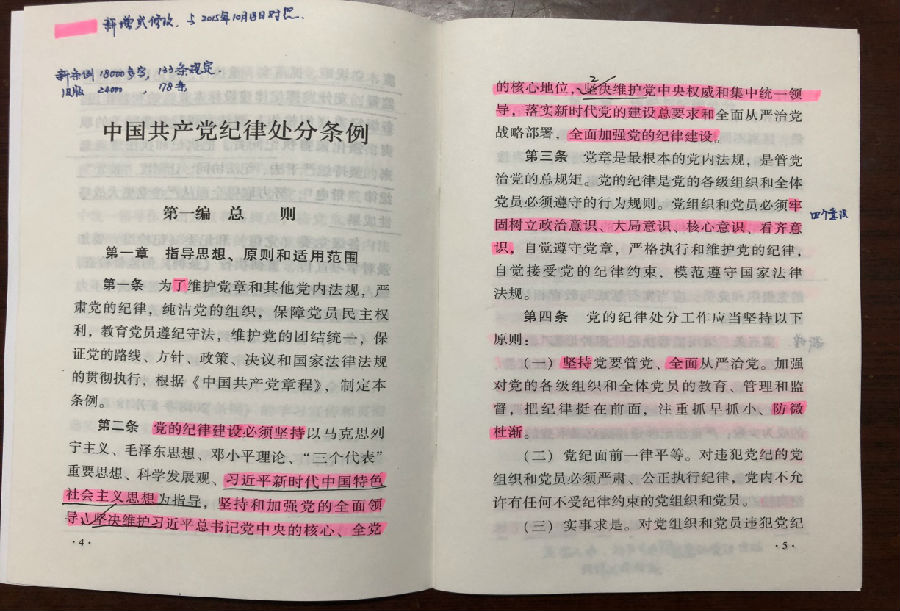 新增或修改，与2015年10月18日对照.
新条例 18000多字，133条规定.
旧版 24000，178条
中国共产党纪律处分条例
第一编 总 则
第一章 指导思想、原则和适用范围
第一条 为了维护党章和其他党内法规，严
肃党的纪律，纯洁党的组织，保障党员民主权
利，教育党员遵纪守法，维护党的团结统一，保
证党的路线、方针、政策、决议和国家法律法规
的贯彻执行，根据《中国共产党章程》，制定本
条例。
第二条 党的纪律建设必须坚持以马克思列
宁主义、毛泽东思想、邓小平理论、“三个代表”
重要思想、科学发展观、习近平新时代中国特色
社会主义思想为指导，坚持和加强党的全面领
导，坚决维护习近平总书记党中央的核心、全党
·4·
2
的核心地位，坚决维护党中央权威和集中统一领
导，落实新时代党的建设总要求和全面从严治党
战略部署，全面加强党的纪律建设。
第三条 党章是最根本的党内法规，是管党
治党的总规矩。党的纪律是党的各级组织和全体
党员必须遵守的行为规则。党组织和党员必须牢
四个意识
固树立政治意识、大局意识、核心意识、看齐意
识，自觉遵守党章，严格执行和维护党的纪律，
自觉接受党的纪律约束，模范遵守国家法律
法规。
第四条 党的纪律处分工作应当坚持以下
原则：
（一）坚持党要管党、全面从严治党。加强
对党的各级组织和全体党员的教育、管理和监
督，把纪律挺在前面，注重抓早抓小、防微
杜渐。
（二）党纪面前一律平等。对违犯党纪的党
组织和党员必须严肃、公正执行纪律，党内不允
许有任何不受纪律约束的党组织和党员。
（三）实事求是。对党组织和党员违犯党纪
·5·